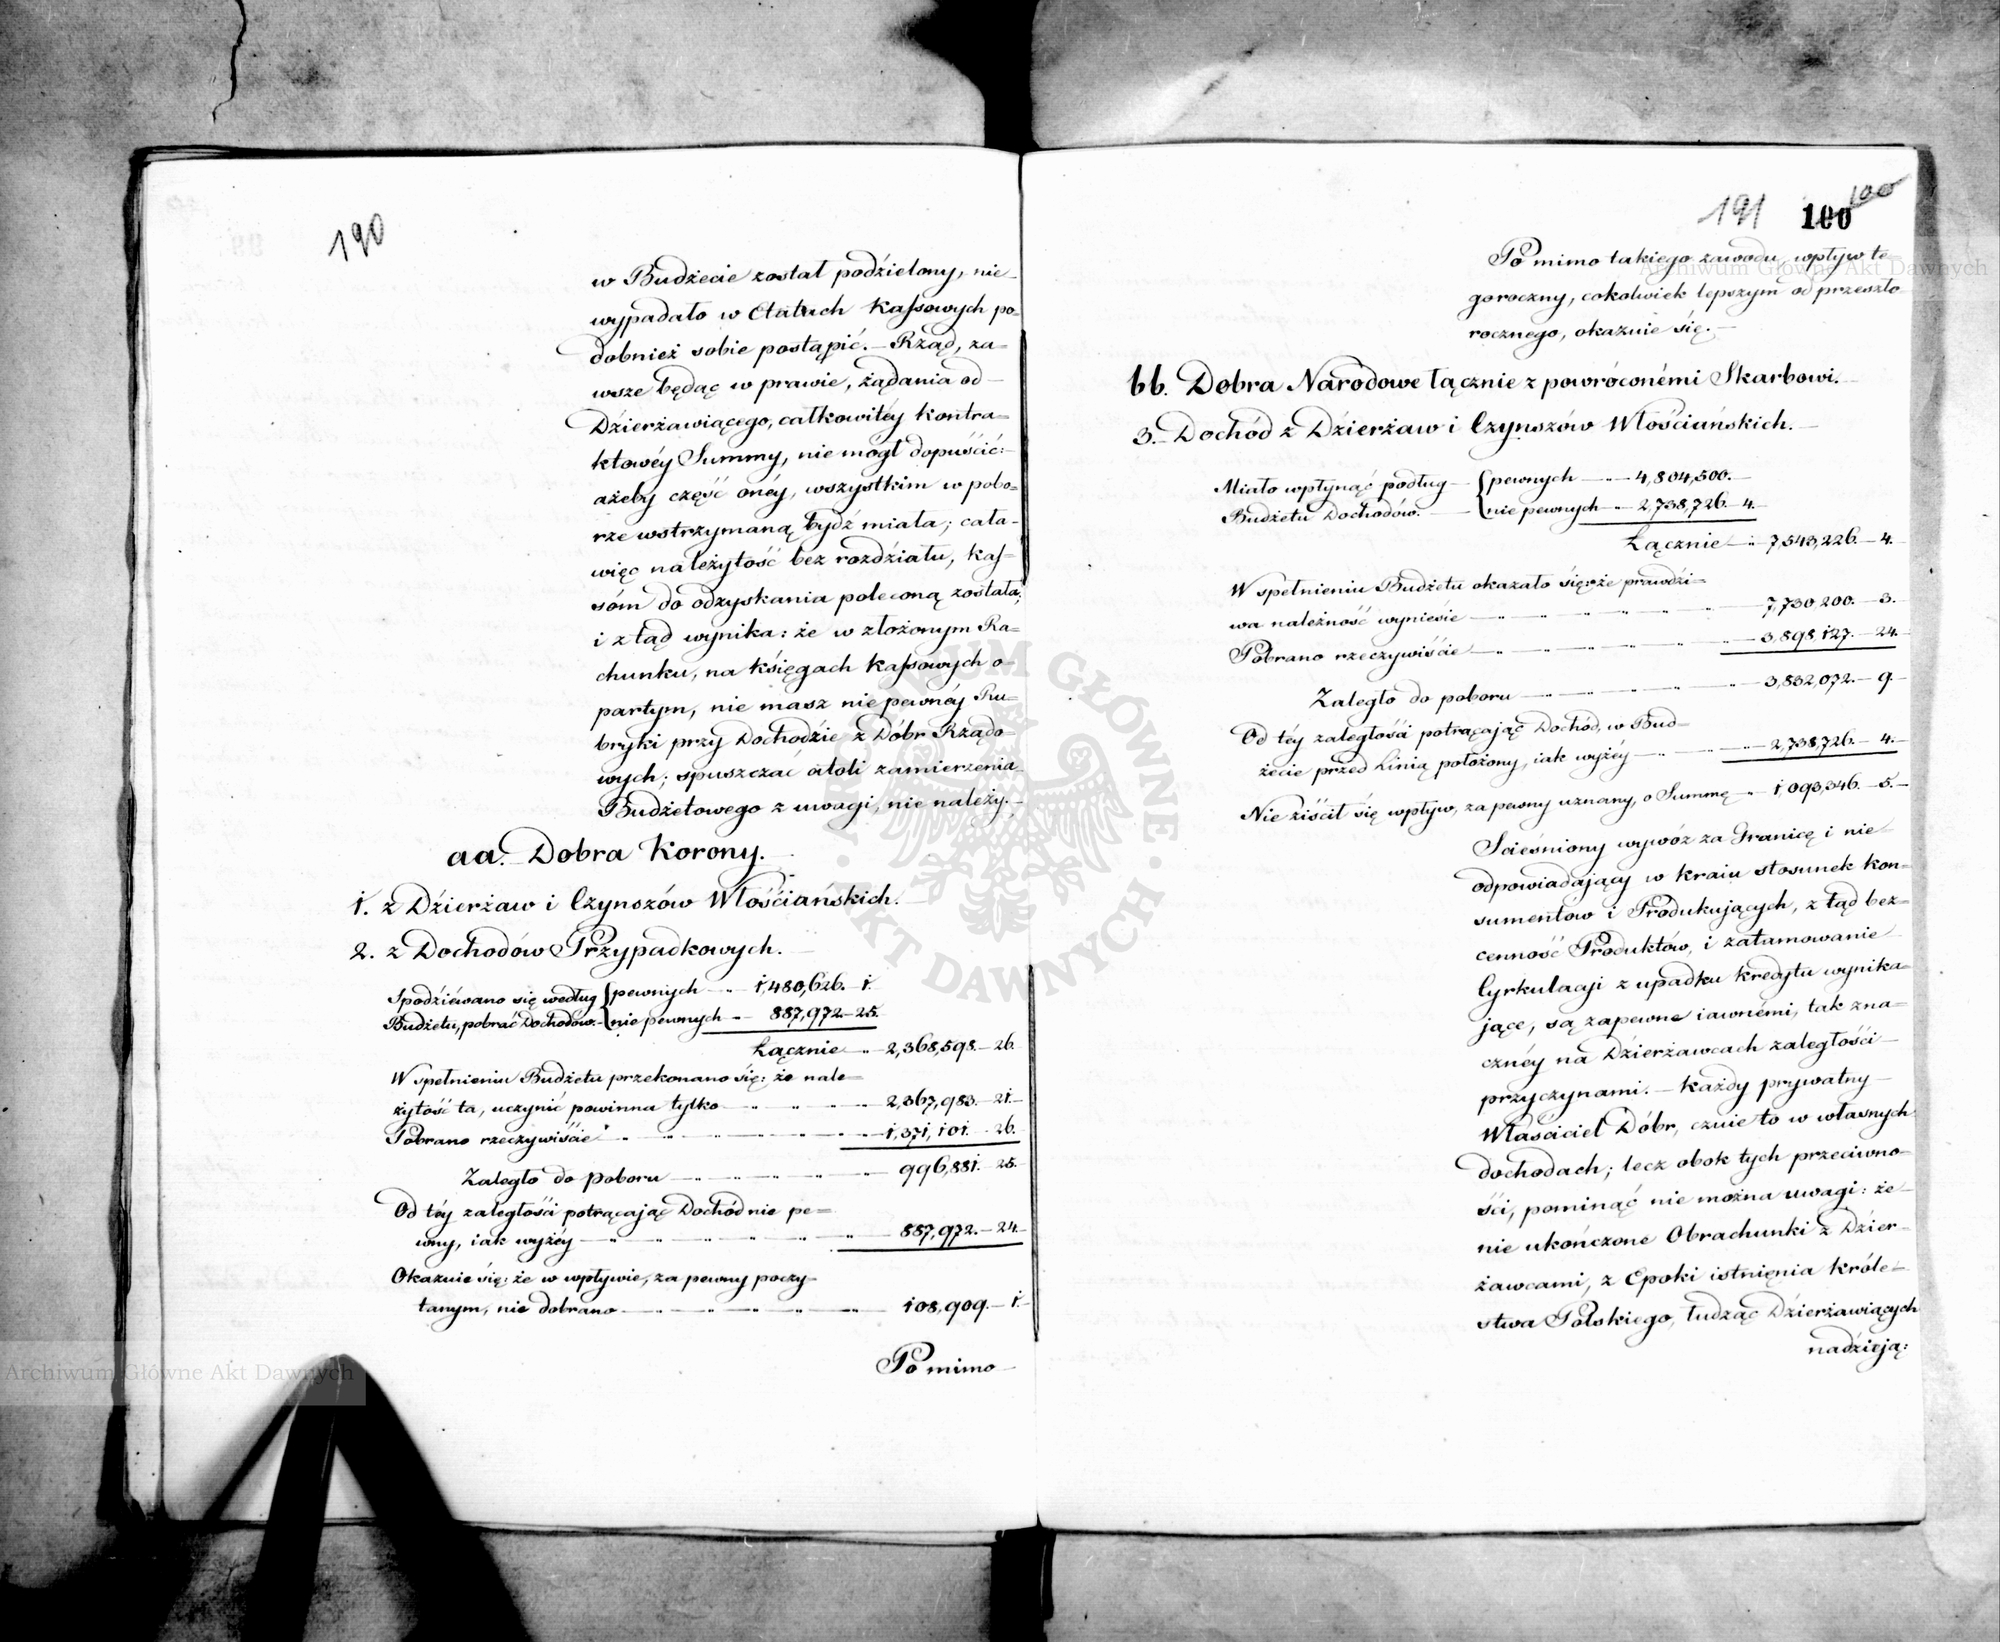 190
w Budżecie został podzielony, nie
wypadało w Etatach Kassowych po=
dobnież sobie postąpić. — Rząd, za=
wsze będąc w prawie, żądania od
Dzierżawiącego, całkowitéy kontra=
ktowéy Summy, nie mógł dopuścić:
ażeby część onéy, wszystkim w pobo=
rze wstrzymaną bydź miała; cała
więc należytość bez rozdziału, Kas=
sóm do odzyskania poleconą została;
i ztąd wynika: że w złożonym Ra=
chunku, na księgach Kassowych o=
partym, nie masz nie pewnéy Ru=
bryki przy Dochodzie z Dóbr Rządo=
wych; spuszczać atoli zamierzenia
Budżetowego z uwagi, nie należy. —
aa. Dobra Korony.
1. z Dzierżaw i Czynszów Włościańskich.
2. z Dochodów Przypadkowych.
Spodziéwano się według { pewnych — „ — 1,480,626. — 1.
Budżetu, pobrać Dochodów. { nie pewnych — „ — 887,972. — 25.
Łącznie — „ — 2,368,598. — 26.
W spełnieniu Budżetu przekonano się: że nale=
żytość ta, uczynić powinna tylko — „ — „ — 2,367,983. — 21.
Pobrano rzeczywiście — „ — „ — 1,371,101. — 26.
Zaległo do poboru — „ — „ — 996,881. — 25.
Od téy zaległości potrącając Dochód nie pe=
wny, iak wyżéy — „ — „ — 887,972. — 24.
Okazuie się: że w wpływie, za pewny poczy=
tanym, nie dobrano — „ — „ — 108,909. — 1.
Po mimo
191 100 100
Po mimo takiego zawodu, wpływ te=
goroczny, cokolwiek lepszym od przeszło
rocznego, okazuie się. —
bb. Dobra Narodowe łącznie z powróconémi Skarbowi.
3. Dochód z Dzierżaw i Czynszów Włościańskich. —
Miało wpłynąć podług { pewnych — „ — 4,804,500. —
Budżetu Dochodów. { nie pewnych — „ — 2,738,726. 4.
Łącznie — „ — 7,543,226. — 4.
W spełnieniu Budżetu okazało się: że prawdzi=
wa należność wyniesie — „ — „ — 7,730,200. — 3.
Pobrano rzeczywiście — „ — „ — 3,898,127. — 24.
Zaległo do poboru — „ — „ — 3,832,072. — 9.
Od téy zaległości potrącając Dochód, w Bud=
żecie przed Linią położony, iak wyżéy — „ — „ — 2,738,726. — 4.
Nie ziścił się wpływ, za pewny uznany, o Summę „ 1,093,346. — 5. —
Scieśniony wywóz za Granicę i nie
odpowiadający w kraiu stosunek kon=
sumentow i Produkujących, z tąd bez=
cenność Produktów, i zatamowanie
Cyrkulacji z upadku kredytu wynika=
jące, są zapewne iawnémi, tak zna=
cznéy na Dzierżawcach zaległości
przyczynami. — Każdy prywatny
Właściciel Dóbr, czuie to w własnych
dochodach; lecz obok tych przeciwno=
ści, pominąć nie można uwagi: że
nie ukończone Obrachunki z Dzier=
żawcami, z Epoki istnięnia Króle=
stwa Polskiego, łudząc Dzierżawiących
nadzieją:
Archiwum Główne Akt Dawnych
Archiwum Główne Akt Dawnych
ARCHIWUM GŁÓWNE · AKT DAWNYCH ·